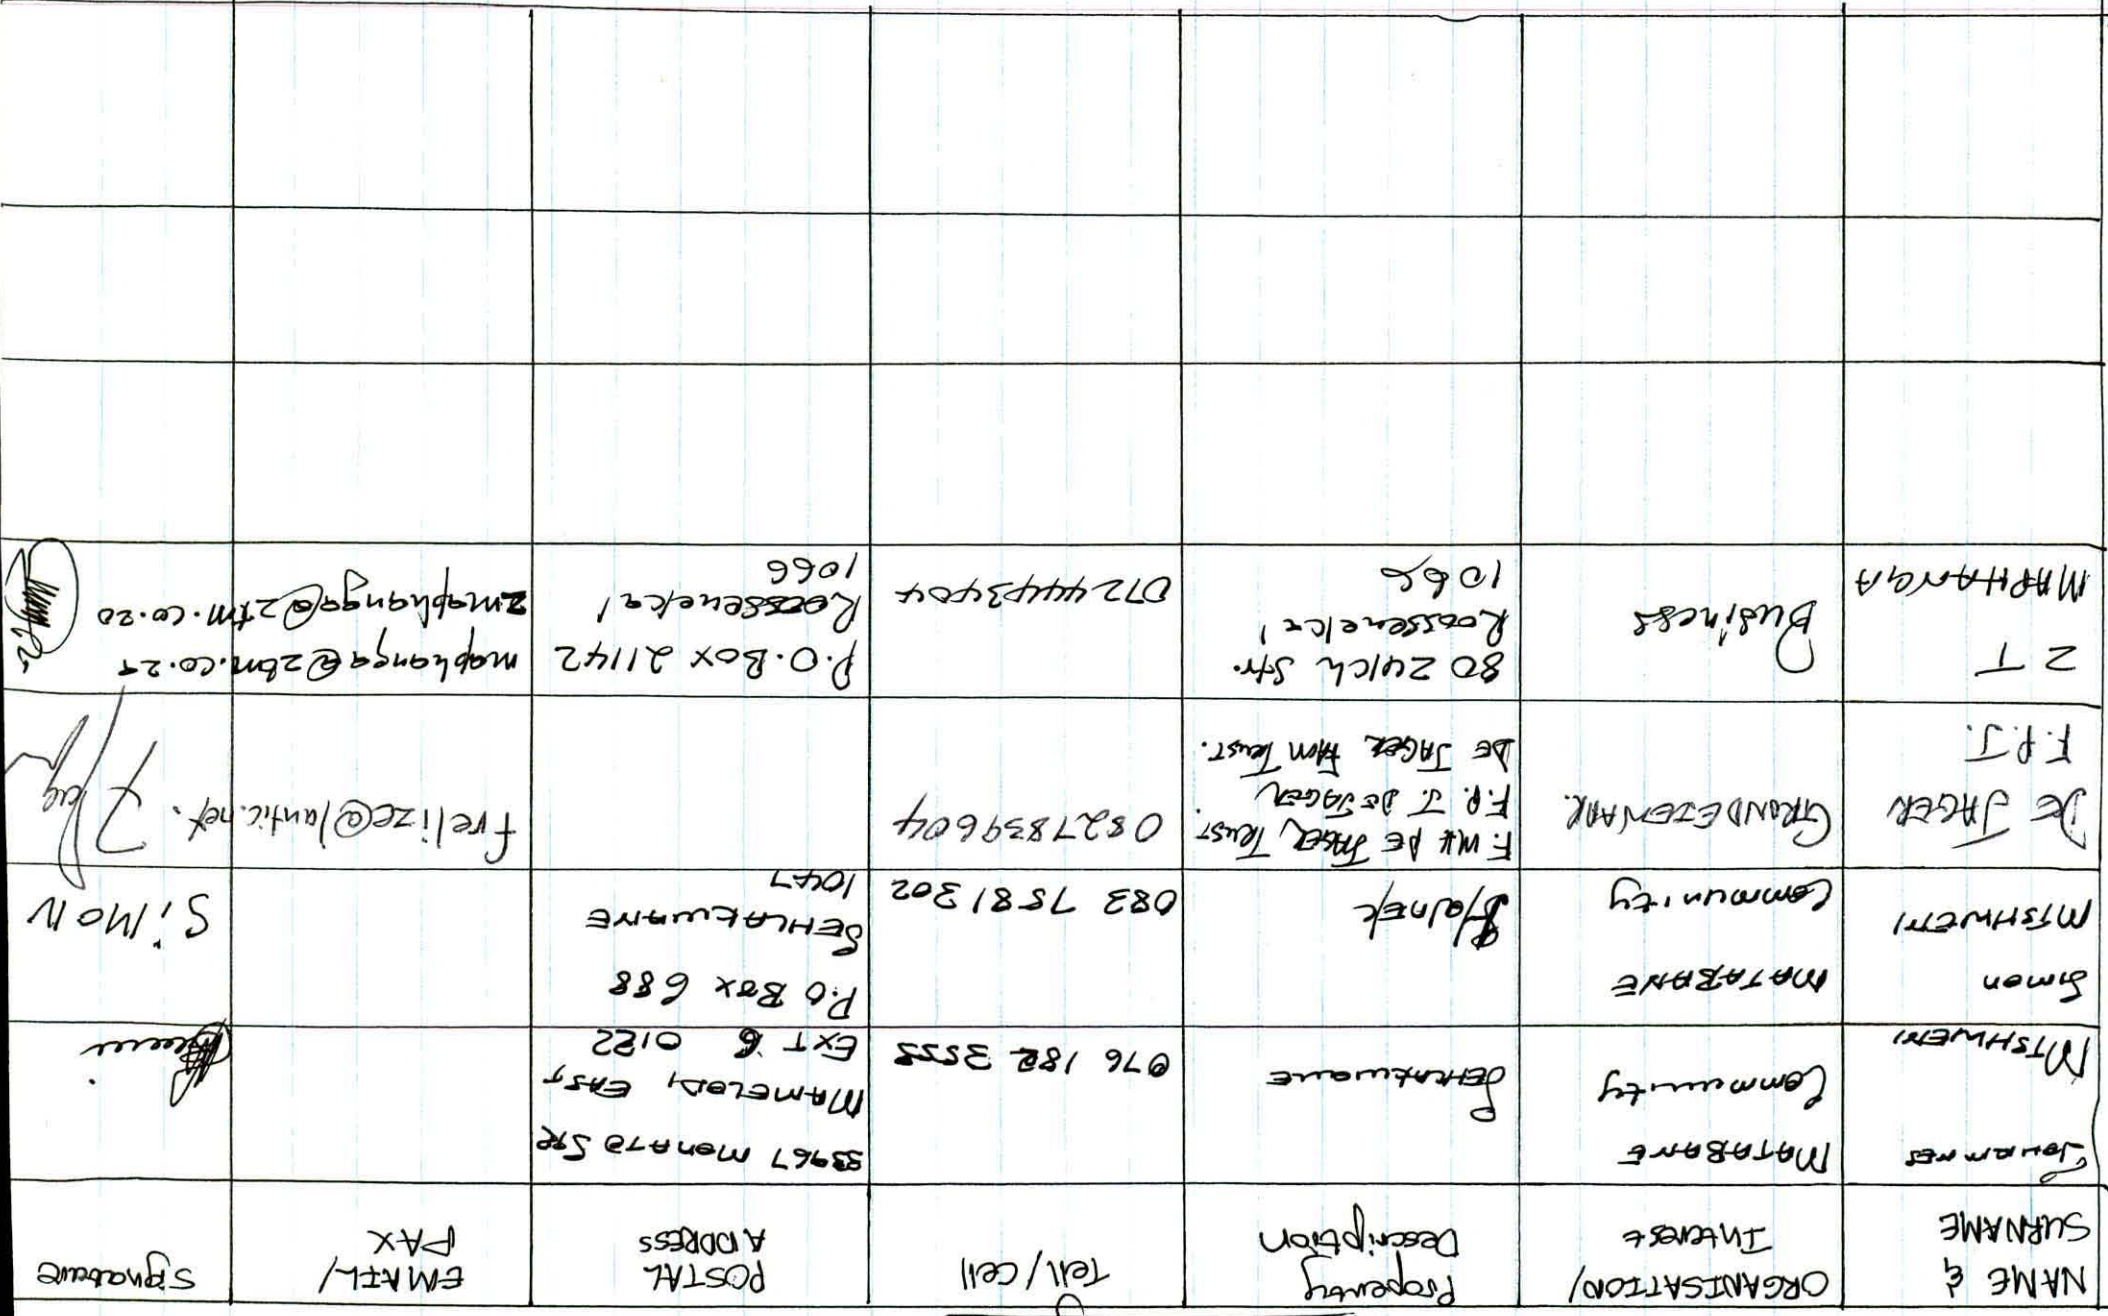 NAME & SURNAME
ORGANISATION/ Interest
Property Description
Tell/Cell
POSTAL ADDRESS
EMAIL/ FAX
Signature
Johannes
MTSHWENI
MATABANE
Community
SEHLAKWANE
076 182 3555
33967 MONATO STR
MAMELODI EAST
EXT 6 0122
Simon
MTSHWENI
MATABANE
Community
083 7581302
P.O Box 688
SEHLAKWANE
1047
SiMON
DE JAGER
F.P.J.
GRONDEIENAAR.
F.W.H DE JAGER TRUST.
F.P.J. DE JAGER
DE JAGER FAM TRUST.
0827839604
frelize@lantic.net.
Z T
MAPHANGA
Business
80 Zulch Str.
Roossenekal
1066
0724443404
P.O. Box 21142
Roossenekal
1066